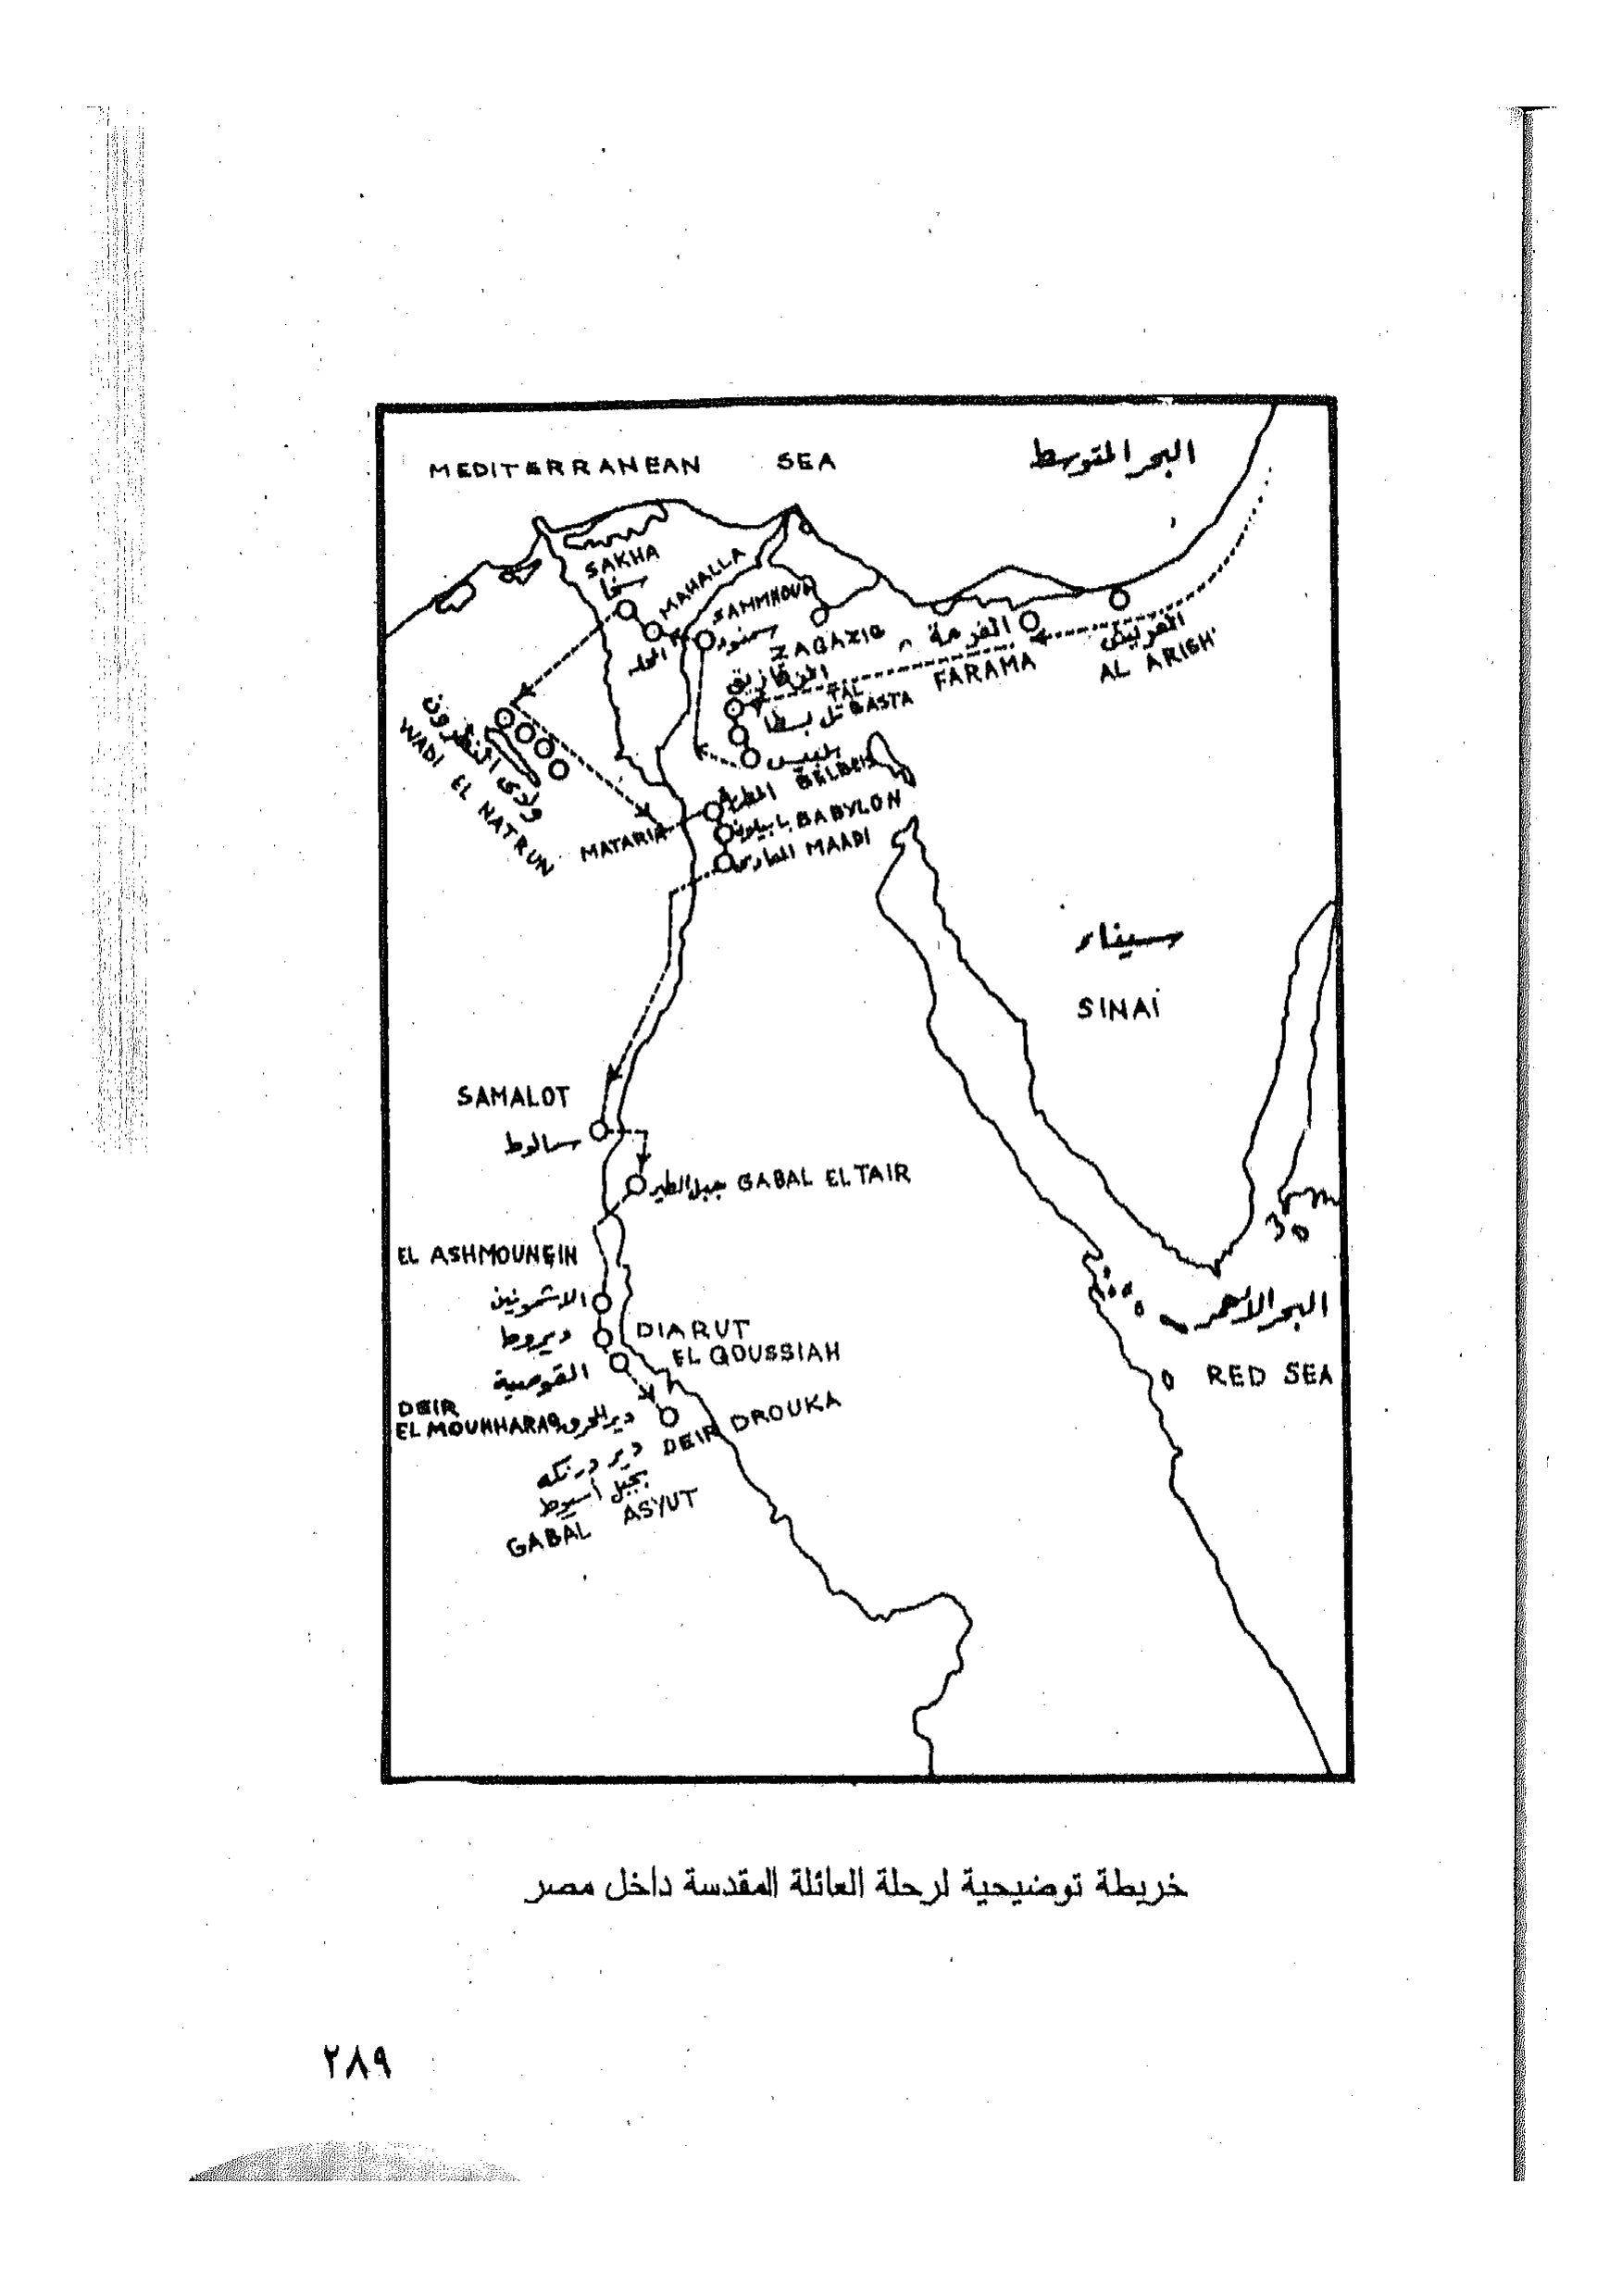 MEDITERRANEAN SEA
البحر المتوسط
SAKHA
سخا
MAHALLA
المحله
SAMMNOUD
سمنود
ZAGAZIG
الزقازيق
الفرمة
FARAMA
العريش
AL ARISH
TAL BASTA
تل بسطا
بلبيس
BELBEIS
وادى النطرون
WADI EL NATRUN
MATARIA
المطرية
بابيلون BABYLON
المعادى MAADI
سيناء
SINAI
SAMALOT
سمالوط
جبل الطير GABAL EL TAIR
EL ASHMOUNEIN
الاشمونين
ديروط
DIARUT
القوصية
EL QOUSSIAH
DEIR
EL MOUHHARAQ
دير المحرق
DEIR DROUKA
دير درنكه
بجبل أسيوط
GABAL ASYUT
البحر الاحمر
RED SEA
خريطة توضيحية لرحلة العائلة المقدسة داخل مصر
٢٨٩